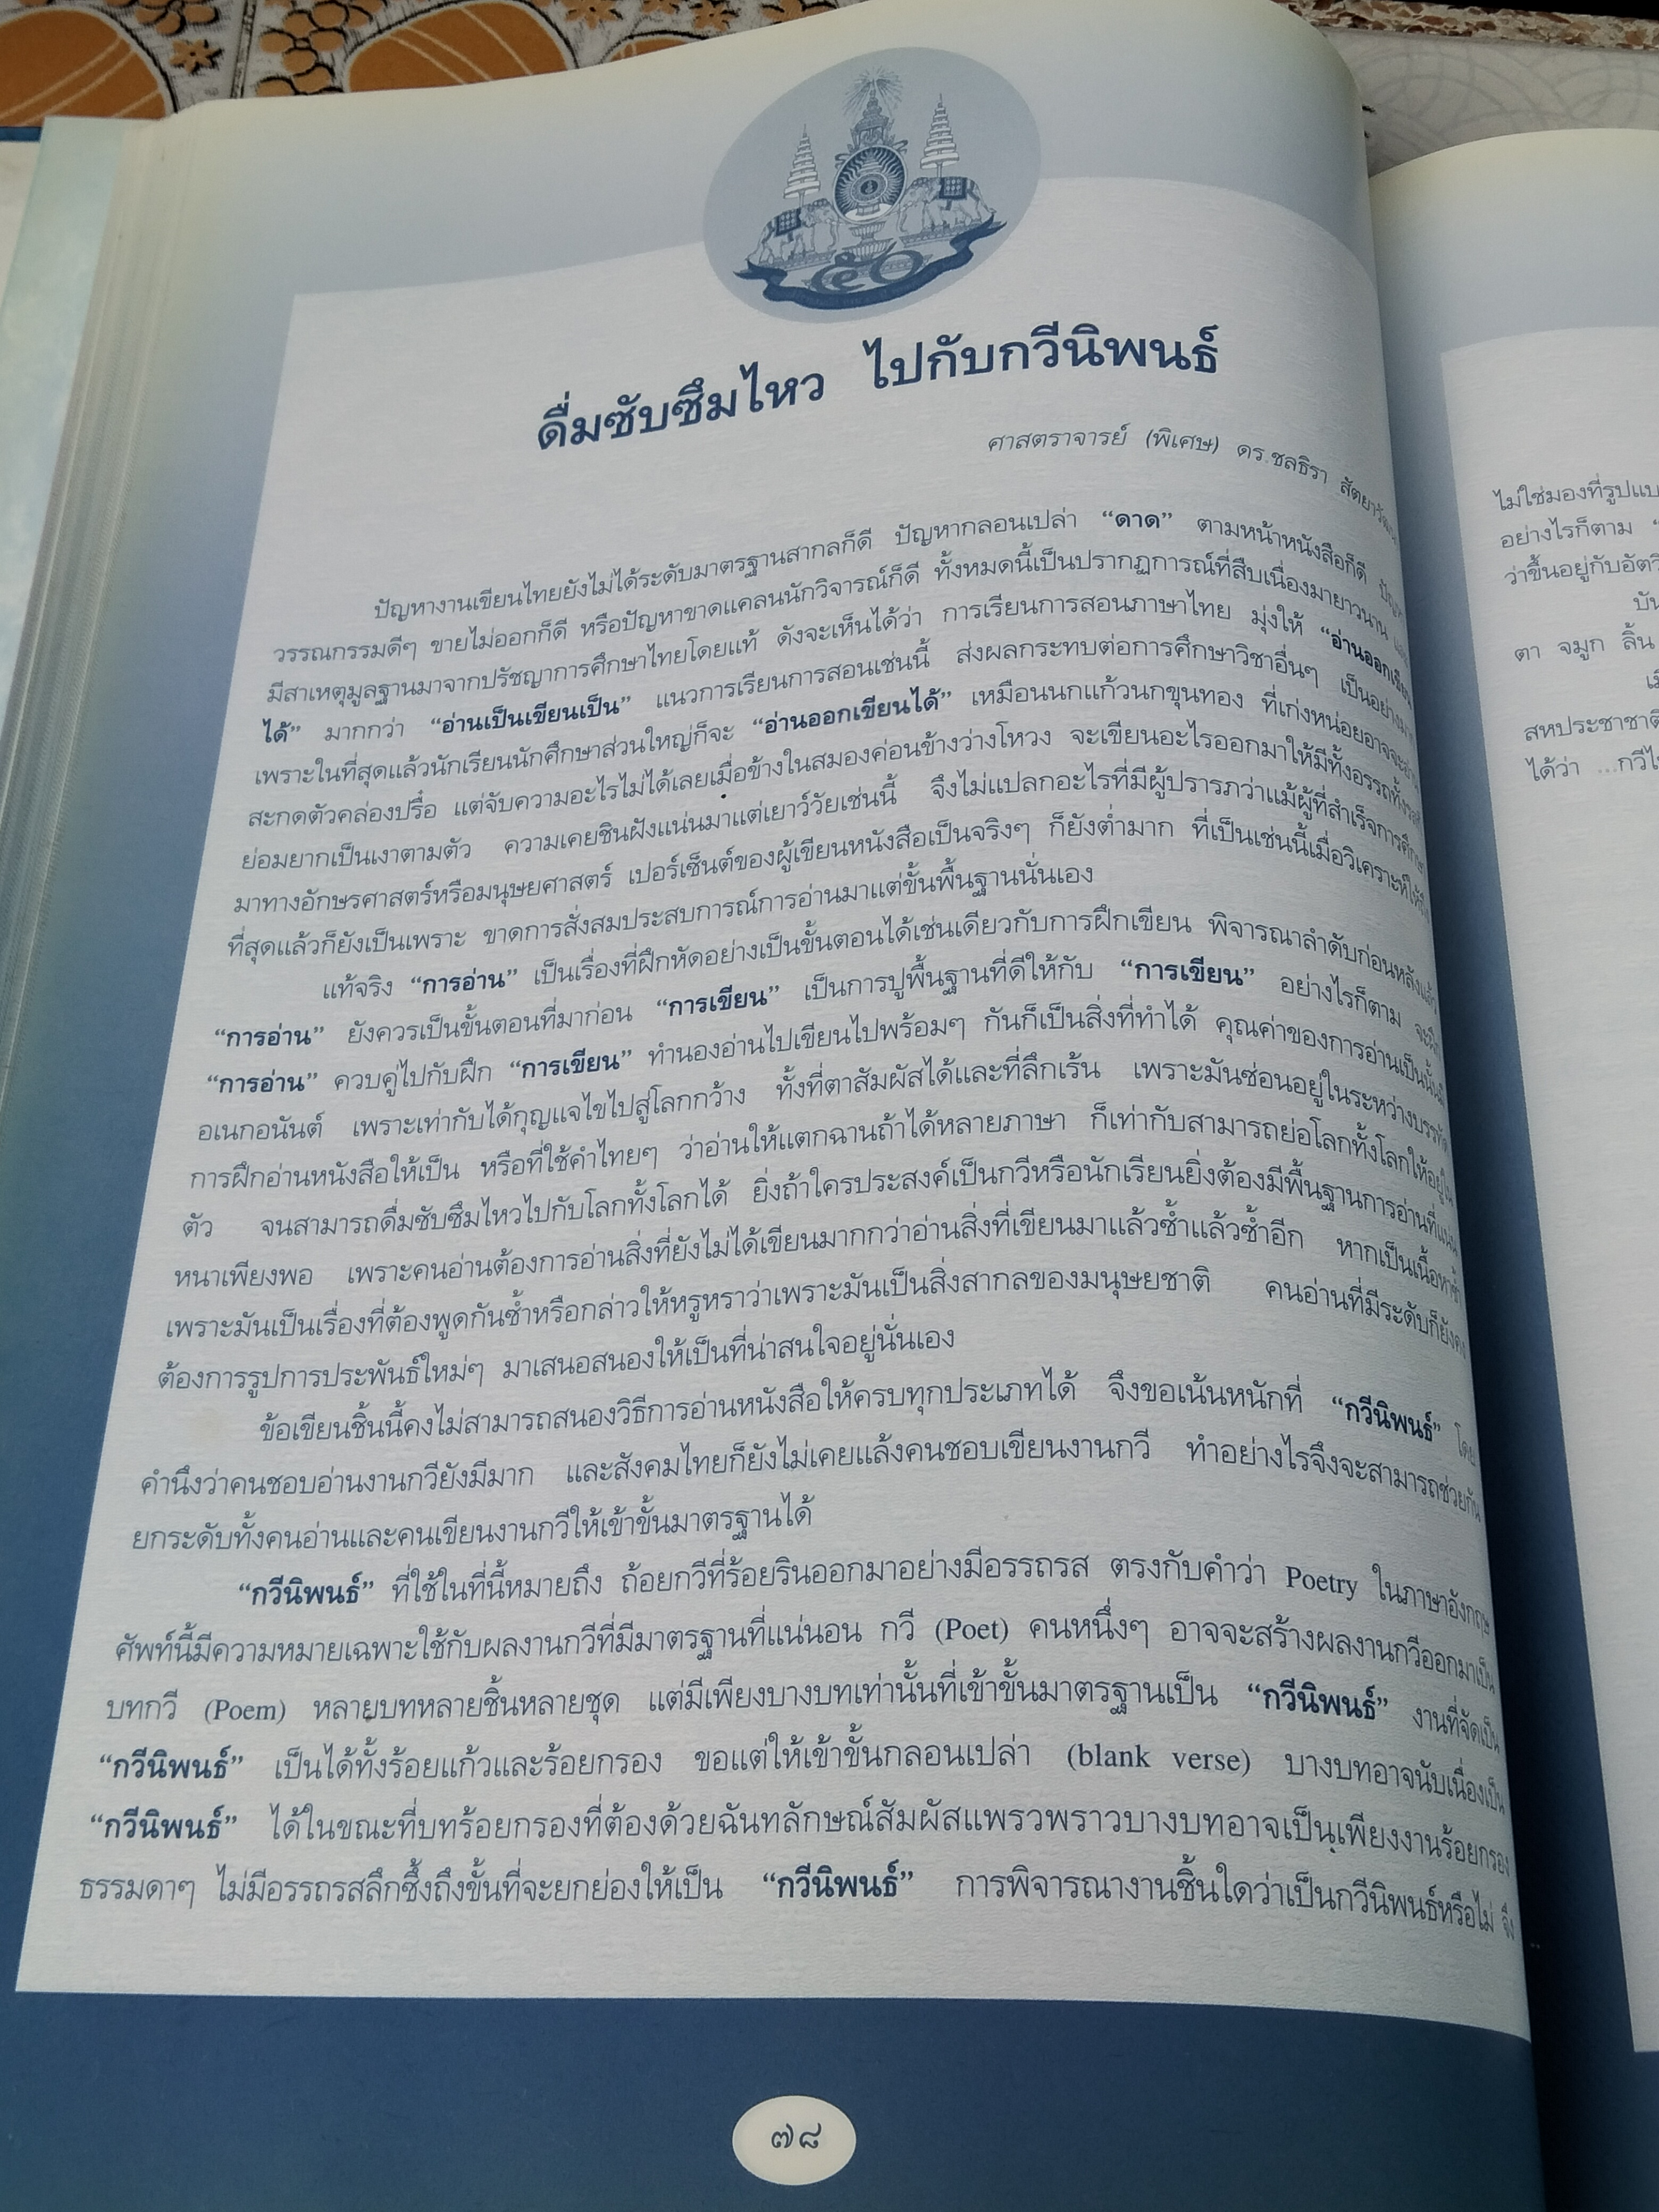 ๕๐
ดื่มซับซึมไหว ไปกับกวีนิพนธ์
ศาสตราจารย์ (พิเศษ) ดร.ชลธิรา สัตยาวัฒนา
ปัญหางานเขียนไทยยังไม่ได้ระดับมาตรฐานสากลก็ดี ปัญหากลอนเปล่า “ดาด” ตามหน้าหนังสือก็ดี ปัญหา
วรรณกรรมดีๆ ขายไม่ออกก็ดี หรือปัญหาขาดแคลนนักวิจารณ์ก็ดี ทั้งหมดนี้เป็นปรากฏการณ์ที่สืบเนื่องมายาวนาน และ
มีสาเหตุมูลฐานมาจากปรัชญาการศึกษาไทยโดยแท้ ดังจะเห็นได้ว่า การเรียนการสอนภาษาไทย มุ่งให้ “อ่านออกเขียน
ได้” มากกว่า “อ่านเป็นเขียนเป็น” แนวการเรียนการสอนเช่นนี้ ส่งผลกระทบต่อการศึกษาวิชาอื่นๆ เป็นอย่างมาก
เพราะในที่สุดแล้วนักเรียนนักศึกษาส่วนใหญ่ก็จะ “อ่านออกเขียนได้” เหมือนนกแก้วนกขุนทอง ที่เก่งหน่อยอาจจะอ่าน
สะกดตัวคล่องปรื๋อ แต่จับความอะไรไม่ได้เลยเมื่อข้างในสมองค่อนข้างว่างโหวง จะเขียนอะไรออกมาให้มีทั้งอรรถทั้งรส
ย่อมยากเป็นเงาตามตัว ความเคยชินฝังแน่นมาแต่เยาว์วัยเช่นนี้ จึงไม่แปลกอะไรที่มีผู้ปรารภว่าแม้ผู้ที่สำเร็จการศึกษา
มาทางอักษรศาสตร์หรือมนุษยศาสตร์ เปอร์เซ็นต์ของผู้เขียนหนังสือเป็นจริงๆ ก็ยังต่ำมาก ที่เป็นเช่นนี้เมื่อวิเคราะห์ให้ถึง
ที่สุดแล้วก็ยังเป็นเพราะ ขาดการสั่งสมประสบการณ์การอ่านมาแต่ขั้นพื้นฐานนั่นเอง
แท้จริง “การอ่าน” เป็นเรื่องที่ฝึกหัดอย่างเป็นขั้นตอนได้เช่นเดียวกับการฝึกเขียน พิจารณาลำดับก่อนหลังแล้ว
“การอ่าน” ยังควรเป็นขั้นตอนที่มาก่อน “การเขียน” เป็นการปูพื้นฐานที่ดีให้กับ “การเขียน” อย่างไรก็ตาม จะฝึก
“การอ่าน” ควบคู่ไปกับฝึก “การเขียน” ทำนองอ่านไปเขียนไปพร้อมๆ กันก็เป็นสิ่งที่ทำได้ คุณค่าของการอ่านเป็นนั้นมี
อเนกอนันต์ เพราะเท่ากับได้กุญแจไขไปสู่โลกกว้าง ทั้งที่ตาสัมผัสได้และที่ลึกเร้น เพราะมันซ่อนอยู่ในระหว่างบรรทัด
การฝึกอ่านหนังสือให้เป็น หรือที่ใช้คำไทยๆ ว่าอ่านให้แตกฉานถ้าได้หลายภาษา ก็เท่ากับสามารถย่อโลกทั้งโลกให้อยู่ใน
ตัว จนสามารถดื่มซับซึมไหวไปกับโลกทั้งโลกได้ ยิ่งถ้าใครประสงค์เป็นกวีหรือนักเรียนยิ่งต้องมีพื้นฐานการอ่านที่แน่น
หนาเพียงพอ เพราะคนอ่านต้องการอ่านสิ่งที่ยังไม่ได้เขียนมากกว่าอ่านสิ่งที่เขียนมาแล้วซ้ำแล้วซ้ำอีก หากเป็นเนื้อหาซ้ำ
เพราะมันเป็นเรื่องที่ต้องพูดกันซ้ำหรือกล่าวให้หรูหราว่าเพราะมันเป็นสิ่งสากลของมนุษยชาติ คนอ่านที่มีระดับก็ยังคง
ต้องการรูปการประพันธ์ใหม่ๆ มาเสนอสนองให้เป็นที่น่าสนใจอยู่นั่นเอง
ข้อเขียนชิ้นนี้คงไม่สามารถสนองวิธีการอ่านหนังสือให้ครบทุกประเภทได้ จึงขอเน้นหนักที่ “กวีนิพนธ์” โดย
คำนึงว่าคนชอบอ่านงานกวียังมีมาก และสังคมไทยก็ยังไม่เคยแล้งคนชอบเขียนงานกวี ทำอย่างไรจึงจะสามารถช่วยกัน
ยกระดับทั้งคนอ่านและคนเขียนงานกวีให้เข้าขั้นมาตรฐานได้
“กวีนิพนธ์” ที่ใช้ในที่นี้หมายถึง ถ้อยกวีที่ร้อยรินออกมาอย่างมีอรรถรส ตรงกับคำว่า Poetry ในภาษาอังกฤษ
ศัพท์นี้มีความหมายเฉพาะใช้กับผลงานกวีที่มีมาตรฐานที่แน่นอน กวี (Poet) คนหนึ่งๆ อาจจะสร้างผลงานกวีออกมาเป็น
บทกวี (Poem) หลายบทหลายชิ้นหลายชุด แต่มีเพียงบางบทเท่านั้นที่เข้าขั้นมาตรฐานเป็น “กวีนิพนธ์” งานที่จัดเป็น
“กวีนิพนธ์” เป็นได้ทั้งร้อยแก้วและร้อยกรอง ขอแต่ให้เข้าขั้นกลอนเปล่า (blank verse) บางบทอาจนับเนื่องเป็น
“กวีนิพนธ์” ได้ในขณะที่บทร้อยกรองที่ต้องด้วยฉันทลักษณ์สัมผัสแพรวพราวบางบทอาจเป็นเพียงงานร้อยกรอง
ธรรมดาๆ ไม่มีอรรถรสลึกซึ้งถึงขั้นที่จะยกย่องให้เป็น “กวีนิพนธ์” การพิจารณางานชิ้นใดว่าเป็นกวีนิพนธ์หรือไม่ จึง
๗๘
ไม่ใช่มองที่รูปแบ
อย่างไรก็ตาม “
ว่าขึ้นอยู่กับอัตวิ
บัน
ตา จมูก ลิ้น
สหประชาชาติ
ได้ว่า ...กวีไ